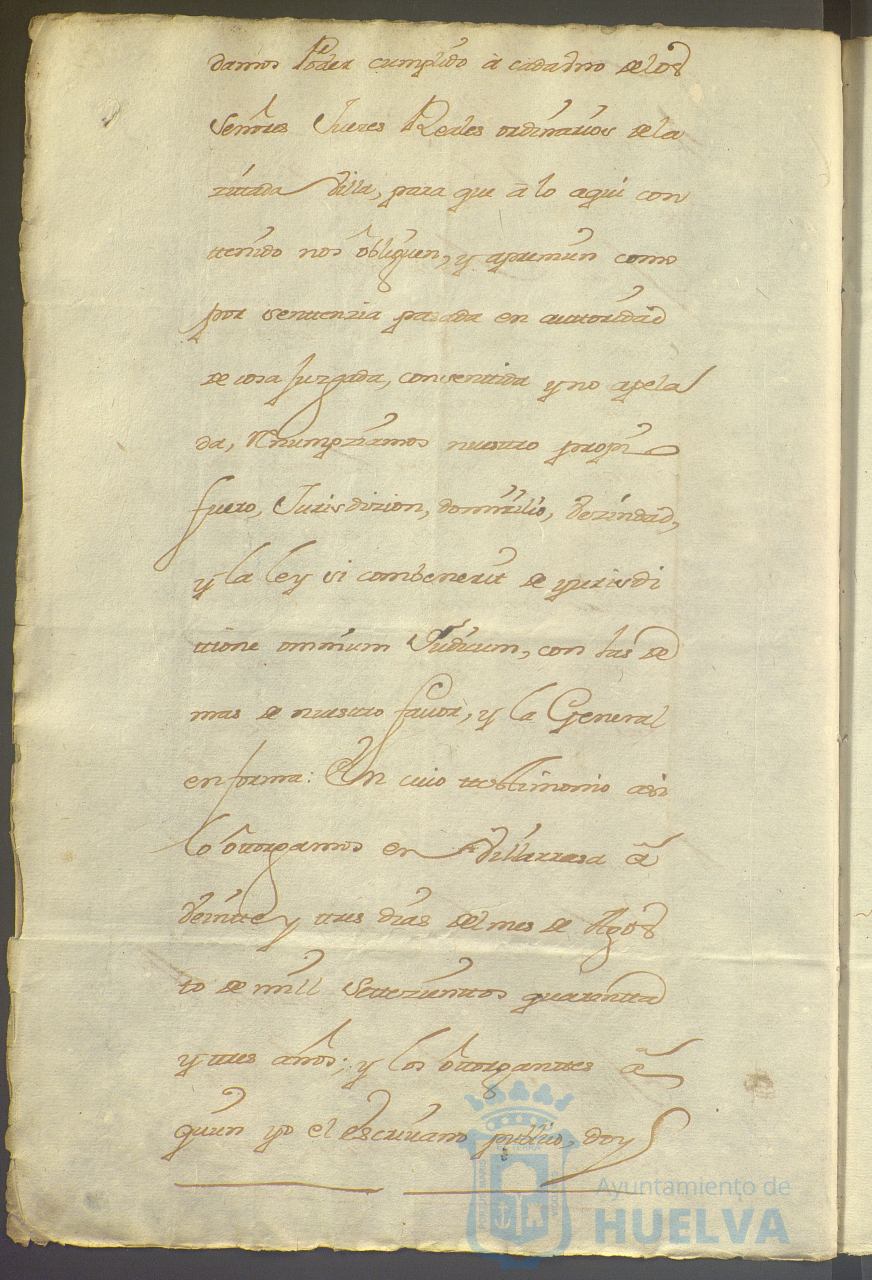 damos Poder cumplido à cada vno de los
Señores Jueces Reales ordinarios de la
zitada Villa, para que a lo aqui con
tenido nos obliguen, y apremien como
por sentenzia pasada en autoridad
de cosa Juzgada, consentida y no apela
da, Renumpziamos nuestro propio
fuero, Jurisdizion, domizilio, Vezindad,
y la ley si combenerit de yurisdi
tione omnium Judicum, con las de
mas de nuestro favor, y la General
en forma: En cuio testimonio asi
lo otorgamos en Villarrasa à
Veinte y tres dias del mes de Agos
to de mill Settezientos quarenta
y tres años; y los otorgantes à
quien yo el escrivano publico, doy
Ayuntamiento de
HUELVA